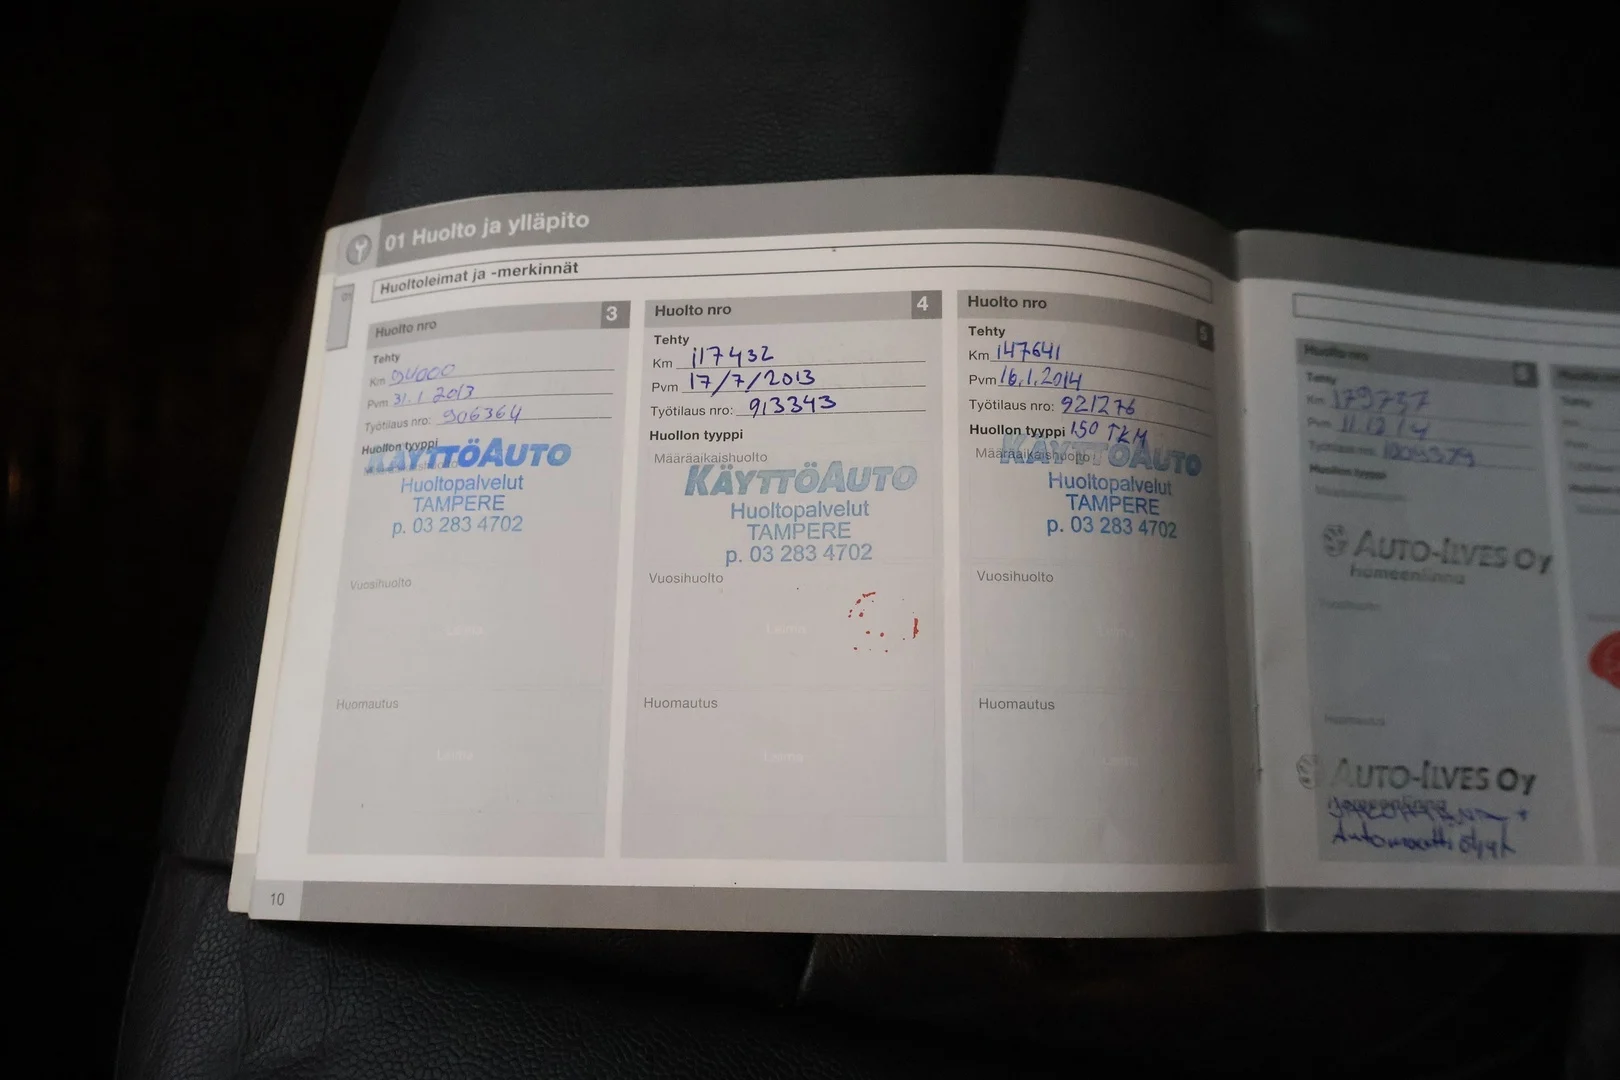 01 Huolto ja ylläpito
Huoltoleimat ja -merkinnät
01
Huolto nro 3
Tehty
Km 94000
Pvm 31.1 2013
Työtilaus nro: 906364
Huollon tyyppi
KÄYTTÖAUTO
Huoltopalvelut
TAMPERE
p. 03 283 4702
Vuosihuolto
Leima
Huomautus
Leima
Huolto nro 4
Tehty
Km 117432
Pvm 17/7/2013
Työtilaus nro: 913343
Huollon tyyppi
Määräaikaishuolto
KÄYTTÖAUTO
Huoltopalvelut
TAMPERE
p. 03 283 4702
Vuosihuolto
Leima
Huomautus
Leima
Huolto nro 5
Tehty
Km 147641
Pvm 16.1.2014
Työtilaus nro: 921276
Huollon tyyppi 150 TKM
Määräaikaishuolto
KÄYTTÖAUTO
Huoltopalvelut
TAMPERE
p. 03 283 4702
Vuosihuolto
Leima
Huomautus
Leima
10
Huolto nro 6
Tehty
Km 179737
Pvm
Työtilaus nro: 1009379
Huollon tyyppi
Määräaikaishuolto
AUTO-ILVES OY
Hämeenlinna
Vuosihuolto
Huomautus
AUTO-ILVES OY
Hämeenlinna
Automaatti öljyt